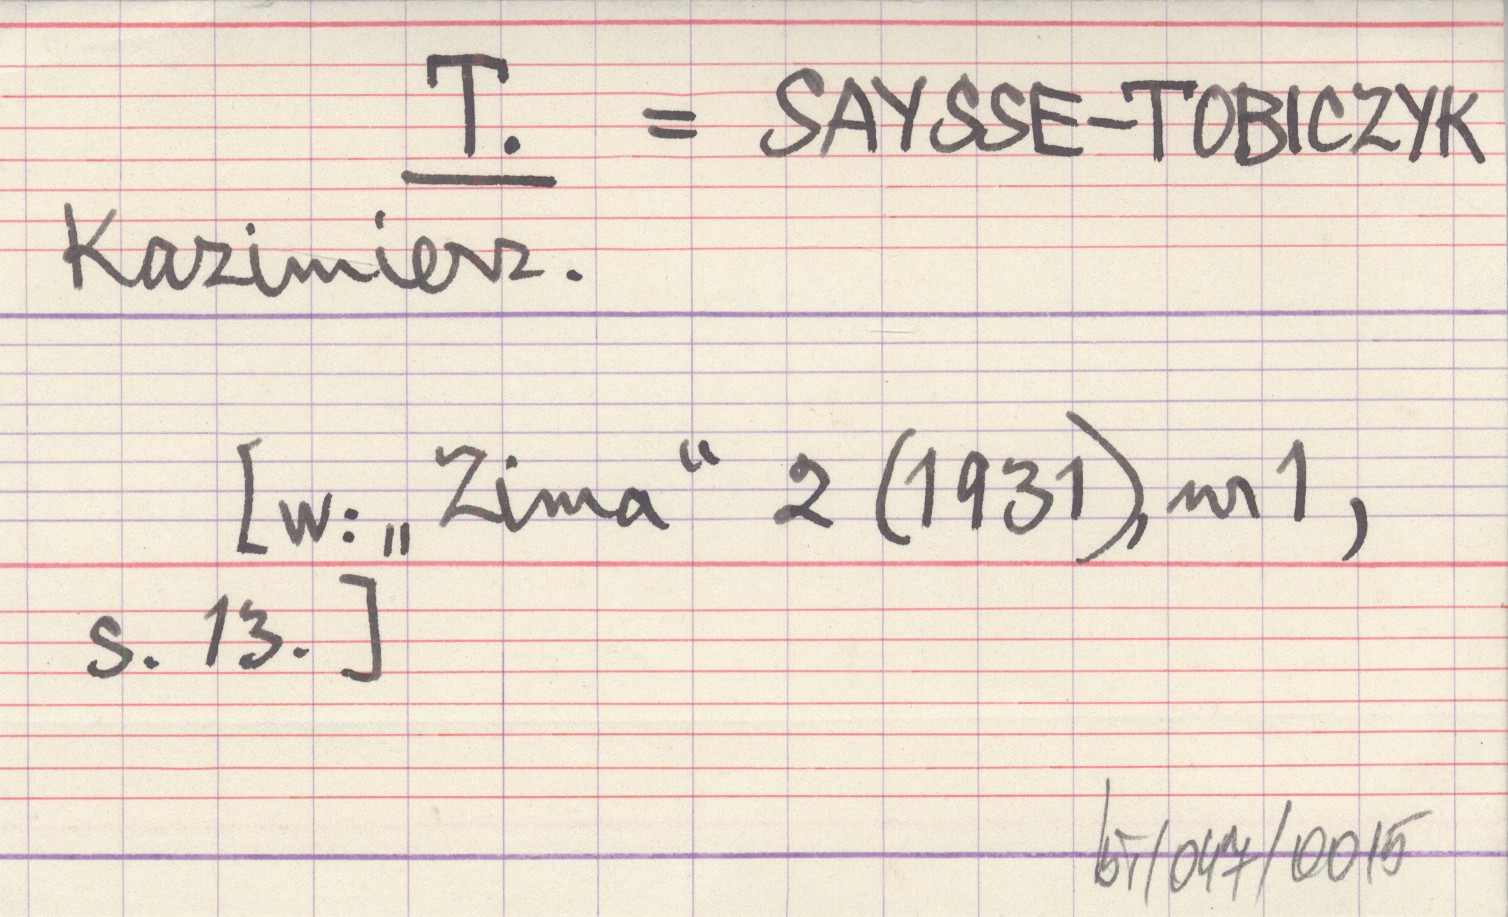 T. = SAYSSE-TOBICZYK
Kazimierz.
[w: „Zima“ 2 (1931), nr 1,
s. 13.]
bt/047/0015